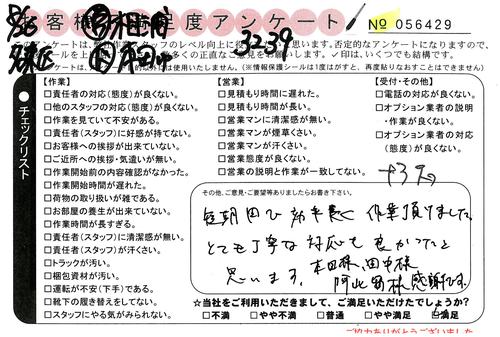 お客様満足度アンケート
№ 056429
3239
【作業】
□責任者の対応(態度)が良くない。
□他のスタッフの対応(態度)が良くない。
□作業を見ていて不安がある。
□責任者(スタッフ)に好感が持てない。
□お客様への挨拶が出来ていない。
□ご近所への挨拶・気遣いが無い。
□作業開始前の内容確認がなかった。
□作業開始時間が遅れた。
□荷物の取り扱いが雑である。
□お部屋の養生が出来ていない。
□作業時間が長すぎる。
□責任者(スタッフ)に清潔感が無い。
□責任者(スタッフ)が汗くさい。
□トラックが汚い。
□梱包資材が汚い。
□運転が不安(下手)である。
□靴下の履き替えをしてない。
□スタッフにやる気がみられない。
【営業】
□見積もり時間に遅れた。
□見積もり時間が長い。
□営業マンに清潔感が無い。
□営業マンが煙草くさい。
□営業マンが汗くさい。
□営業態度が良くない。
□営業の説明と作業が一致してない。
【受付・その他】
□電話の対応が良くない。
□オプション業者の説明
・作業が良くない。
□オプション業者の対応
(態度)が良くない。
チェックリスト
その他、ご意見・ご要望等ありましたらお書き下さい。
短期間で効率良く作業頂けました。
とても丁寧な対応も良かったと
思います。本田様、田中様
阿比留様感謝です。
☆当社をご利用いただきまして、ご満足いただけたでしょうか?
□不満 □やや不満 □普通 □やや満足 ☑満足
ご協力ありがとうございました